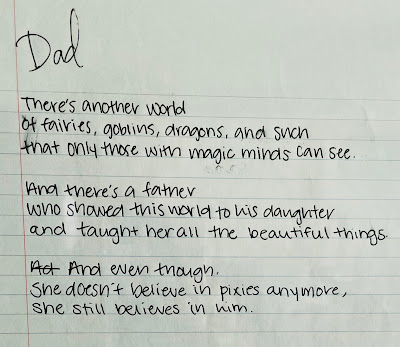 Dad
There's another world
Of fairies, goblins, dragons, and such
that only those with magic minds can see.
And there's a father
who showed this world to his daughter
and taught her all the beautiful things.
Act And even though.
She doesn't believe in pixies anymore,
She still believes in him.